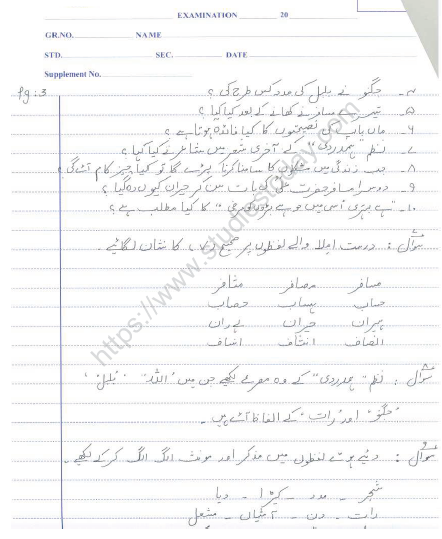 EXAMINATION 20
GR.NO. NAME
STD. SEC. DATE
Supplement No.
pg:3
۴۔ جگنو نے بلبل کی مدد کس طرح کی ؟
۵۔ تیسرے مسافر نے کھانے کے بعد کیا کیا ؟
۶۔ ماں باپ کی نصیحتوں کا کیا فائدہ ہوتا ہے ؟
۷۔ نظم "ہمدردی" کے آخری شعر میں شاعر نے کیا کہا ؟
۸۔ جب زندگی میں مشکلوں کا سامنا کرنا پڑے گا تو کیا چیز کام آئے گی ؟
۹۔ دوسرا مسافر حضرت علیؓ کی بات سن کر حیران کیوں رہ گیا ؟
۱۰۔ "ہے بہتری اسی میں جو ہے بڑوں کی " کا کیا مطلب ہے ؟
سوال : درست املا والے لفظوں پر صحیح (✓) کا نشان لگائیے ۔
مسافر مصافر مثافر
حساب ہساب حصاب
ہیران حیران
انصاف انثاف انساف
سوال : نظم "ہمدردی" کے وہ مصرعے لکھیے جن میں "اللہ" "بلبل"
"جگنو" اور "رات" کے الفاظ آئے ہیں ۔
سوال : دیئے ہوئے لفظوں میں مذکر اور مونث الگ الگ کر کے لکھیے ۔
شجر ۔ مدد ۔ کیڑا ۔ دیا
رات ۔ دن ۔ آشیاں ۔ مشعل
https://www.studiestoday.com